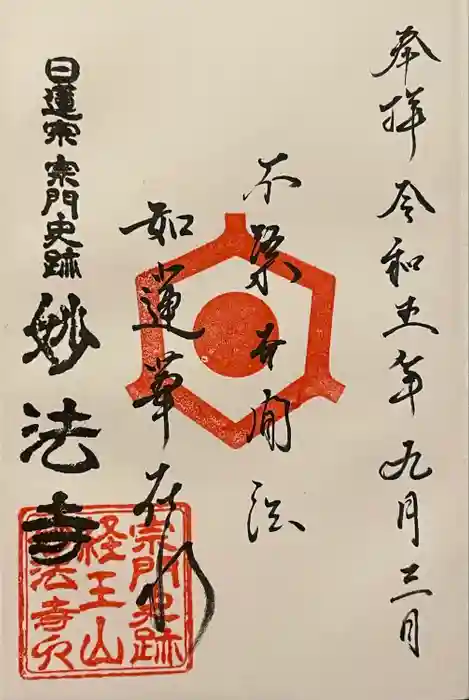 奉拝 令和五年九月三日
不染世間法
如蓮華在水
日蓮宗 宗門史跡 妙法寺
宗門史跡
経王山
妙法寺